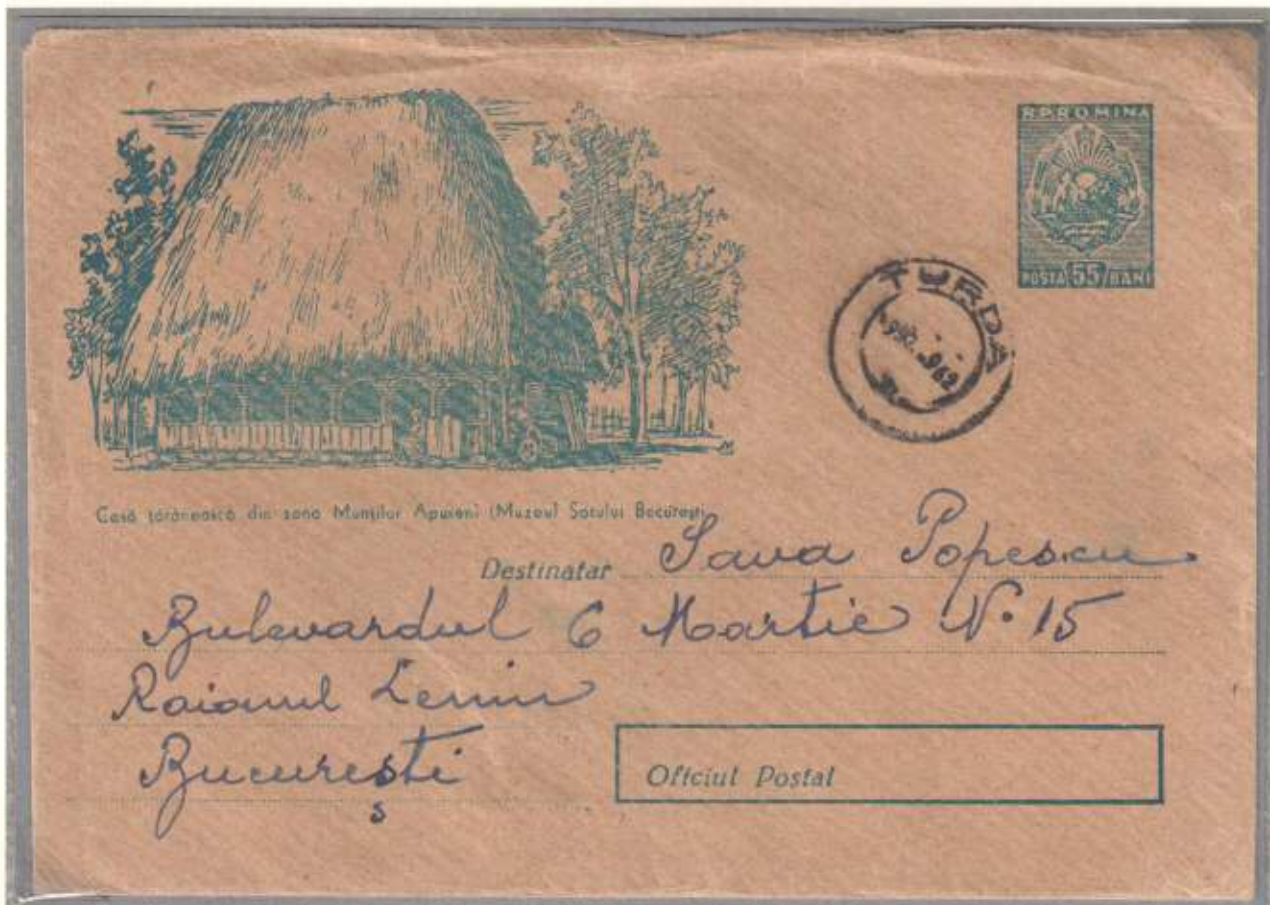 R.P.ROMINA
POSTA 55 BANI
TURDA
Casă țărănească din zona Munților Apuseni (Muzeul Satului București
Destinatar Sava Popescu
Bulevardul 6 Martie No 15
Raionul Lenin
București
Oficiul Poștal